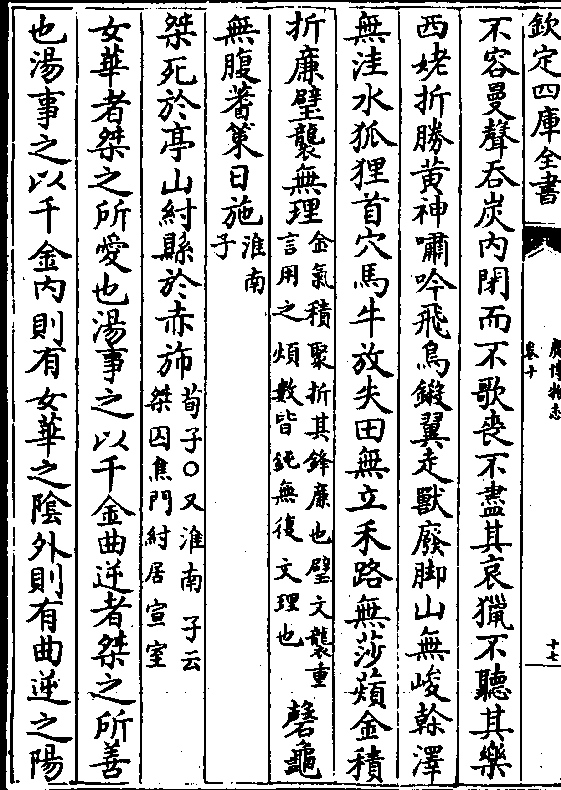 欽定四庫全書
廣博物志
卷十
十七
不容曼聲吞炭内閉而不歌喪不盡其哀獵不聽其樂
西姥折勝黄神嘯吟飛鳥鎩翼走獸廢脚山無峻榦澤
無洼水狐狸首穴馬牛放失田無立禾路無莎薠金積
折廉璧襲無理金氣積聚折其鋒廉也璧文襲重
言用之煩數皆鈍無復文理也
磬龜
無腹蓍策日施淮南
子
桀死於亭山紂縣於赤斾荀子○又淮南子云
桀囚焦門紂居宣室
女華者桀之所愛也湯事之以千金曲逆者桀之所善
也湯事之以千金内則有女華之隂外則有曲逆之陽